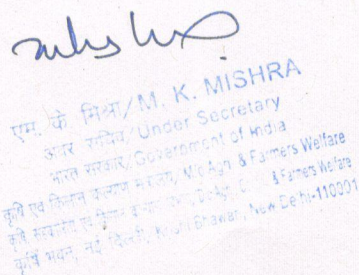 एम. के. मिश्रा/M. K. MISHRA
अवर सचिव/Under Secretary
भारत सरकार/Government of India
कृषि एवं किसान कल्याण मंत्रालय, M/o Agri. & Farmers Welfare
कृषि सहकारिता एवं किसान कल्याण विभाग, D/o Agri. & Farmers Welfare
कृषि भवन, नई दिल्ली, Krishi Bhawan, New Delhi-110001